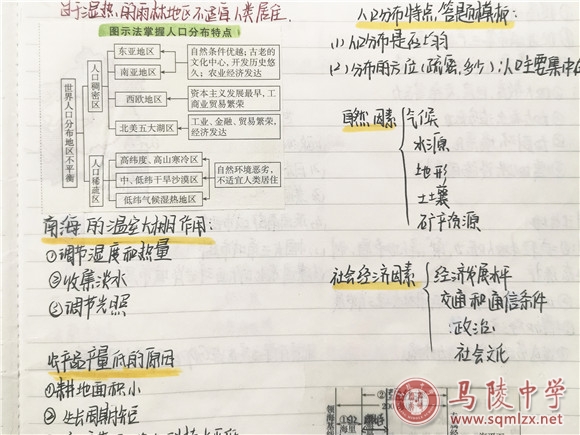 由于湿热,的雨林地区不适宜人类居住.
图示法掌握人口分布特点
世界人口分布地区不平衡
人口稠密区
东亚地区
南亚地区
自然条件优越;古老的文化中心,开发历史悠久;农业经济发达
西欧地区
资本主义发展最早,工商业贸易繁荣
北美五大湖区
工业、金融、贸易繁荣,经济发达
人口稀疏区
高纬度、高山寒冷区
中、低纬干旱沙漠区
低纬气候湿热地区
自然环境恶劣,不适宜人类居住
南海的温室大棚作用:
①调节温度和热量
②收集淡水
③调节光照
产量低的原因
①耕地面积小
②生长周期短
人口分布特点,答题模板:
(1)人口分布是否均匀
(2)分布的方位(疏密,多少):人口主要集中在
自然因素
气候
水源
地形
土壤
矿产资源
社会经济因素
经济发展水平
交通和通信条件
政治
社会文化
领海基线
马陵中学
www.sqmlzx.net